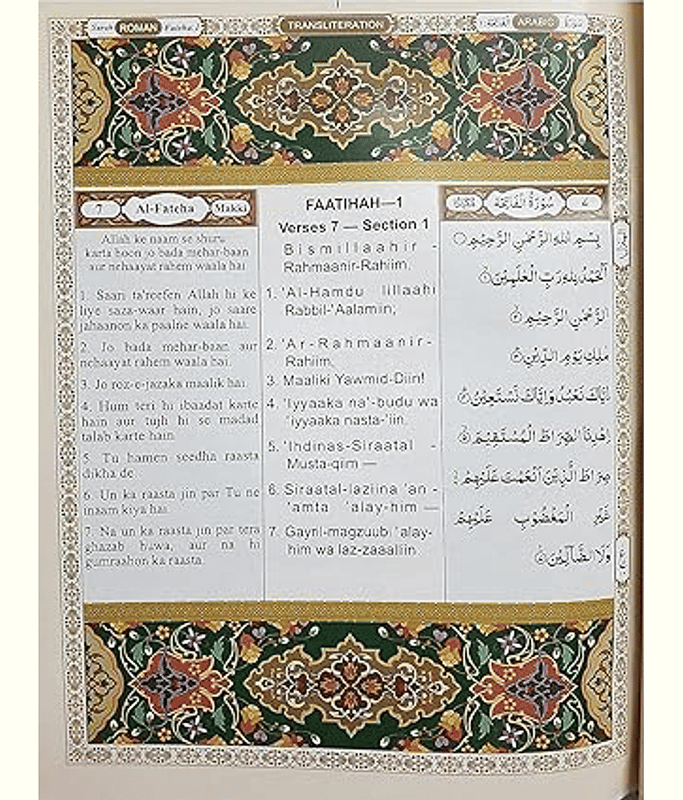 Surah ROMAN Fateha 1
TRANSLITERATION
ARABIC
7 Al-Fateha Makki
Allah ke naam se shuru
karta hoon jo bada mehar-baan
aur nehaayat rahem waala hai
1. Saari ta'roefen Allah hi ke
liye saza-waar hain, jo saare
jahaanon ka paalne waala hai.
2. Jo bada mehar-baan aur
nehaayat rahem waala hai.
3. Jo roz-e-jazaka maalik hai.
4. Hum teri hi ibaadat karte
hain aur tujh hi se madad
talab karte hain.
5. Tu hamen seedha raasta
dikha de.
6. Un ka raasta jin par Tu ne
inaam kiya hai.
7. Na un ka raasta jin par tera
ghazab huwa, aur na hi
gumraahon ka raasta.
FAATIHAH—1
Verses 7 — Section 1
Bismillaahir -
Rahmaanir-Rahiim.
1. 'Al-Hamdu lillaahi
Rabbil-'Aalamiin;
2. 'Ar-Rahmaanir-
Rahiim,
3. Maaliki Yawmid-Diin!
4. 'Iyyaaka na'-budu wa
'iyyaaka nasta-'iin.
5. 'Ihdinas-Siraatal -
Musta-qim —
6. Siraatal-laziina 'an -
'amta 'alay-him —
7. Gayril-magzuubi 'alay-
him wa laz-zaaalliin.
سُوْرَةُ الْفَاتِحَة
بِسْمِ اللهِ الرَّحْمٰنِ الرَّحِيْمِ
اَلْحَمْدُ لِلّٰهِ رَبِّ الْعٰلَمِيْنَ ۱
الرَّحْمٰنِ الرَّحِيْمِ ۲
مٰلِكِ يَوْمِ الدِّيْنِ ۳
اِيَّاكَ نَعْبُدُ وَاِيَّاكَ نَسْتَعِيْنُ ۴
اِهْدِنَا الصِّرَاطَ الْمُسْتَقِيْمَ ۵
صِرَاطَ الَّذِيْنَ اَنْعَمْتَ عَلَيْهِمْ ۶
غَيْرِ الْمَغْضُوْبِ عَلَيْهِمْ
وَلَا الضَّآلِّيْنَ ۷
ع